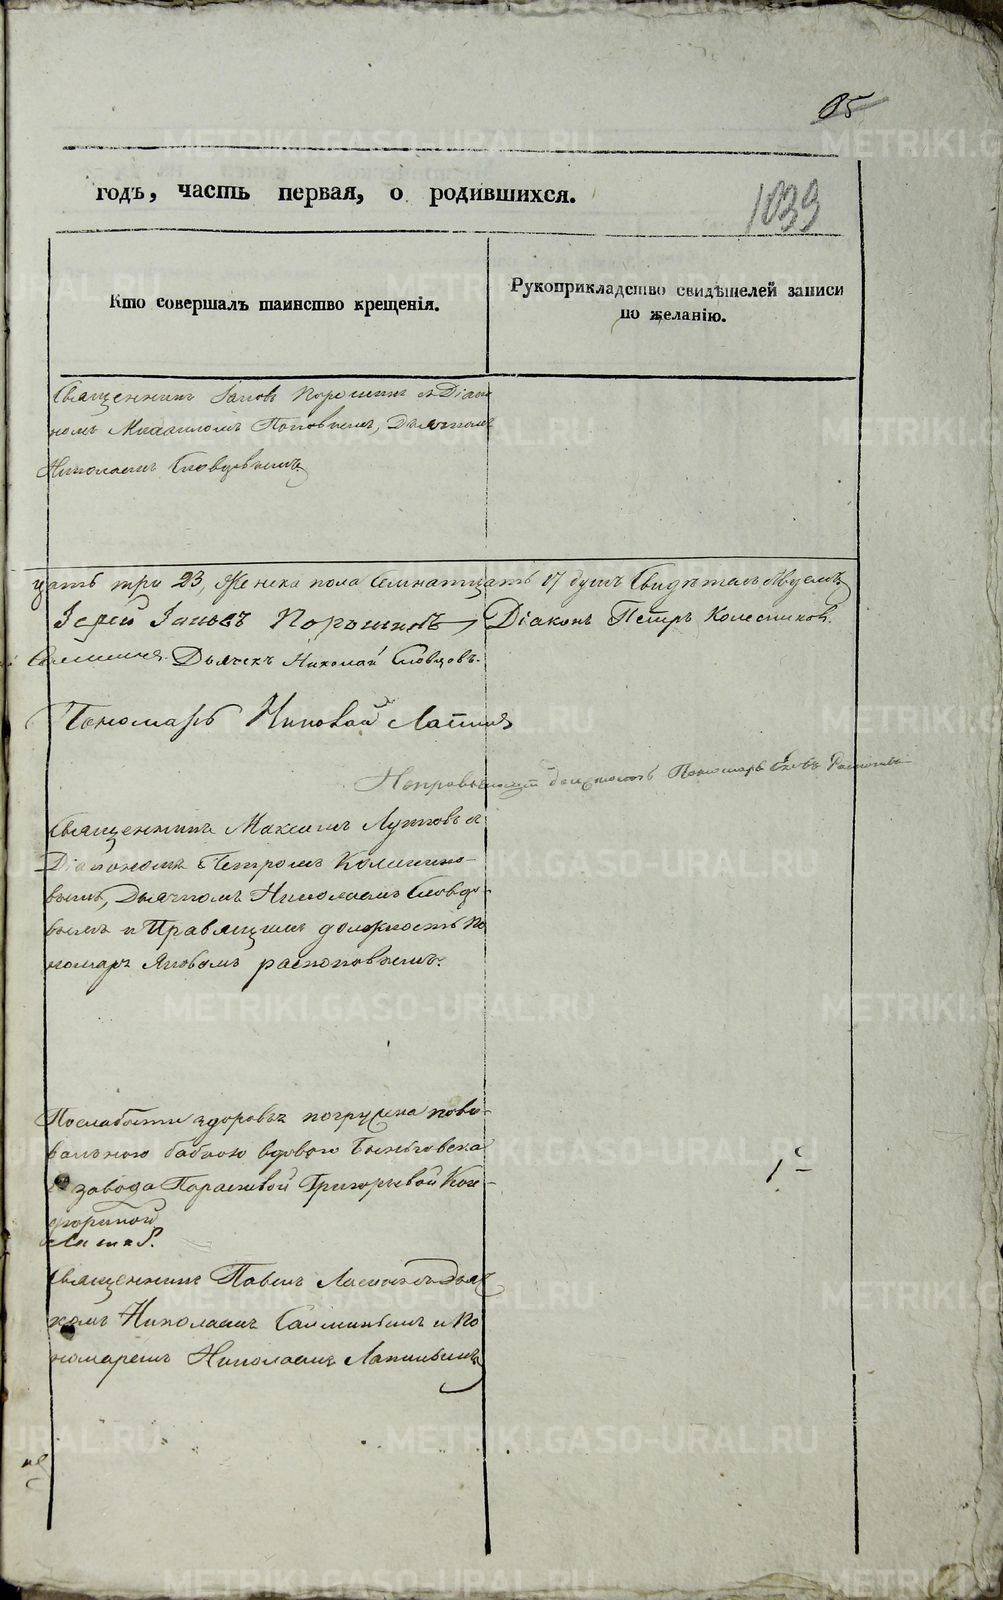 85
годъ, часть первая, о родившихся.
1039
Кто совершалъ таинство крещенія.
Рукоприкладство свидѣтелей записи
по желанію.
Священникъ Іаковъ Порошинъ съ Діако
номъ Михаиломъ Поповымъ, Дьячкомъ
Николаемъ Словцовымъ
цать три 23, женска пола семнатцать 17 душъ
Іерей Іаковъ Порошинъ Діаконъ Петръ Колесниковъ
Дьячекъ Николай Словцовъ.
Пономарь Николай Лапинъ
должность Пономаря
Священникъ Максимъ Лутковъ съ
Діакономъ Петромъ Колеснико-
вымъ, Дьячкомъ Николаемъ Словцо-
вымъ и Правящимъ должность По
номаря Яковомъ распоповымъ.
Послабости здоровья погружена пови-
вальною бабкою вдовою Быньговска
завода Параскевой Григорьевой Кон-
Священникъ Павелъ съ Дьяч
комъ Николаемъ и По
номаремъ Николаемъ Лапинымъ
METRIKI.GASO-URAL.RU